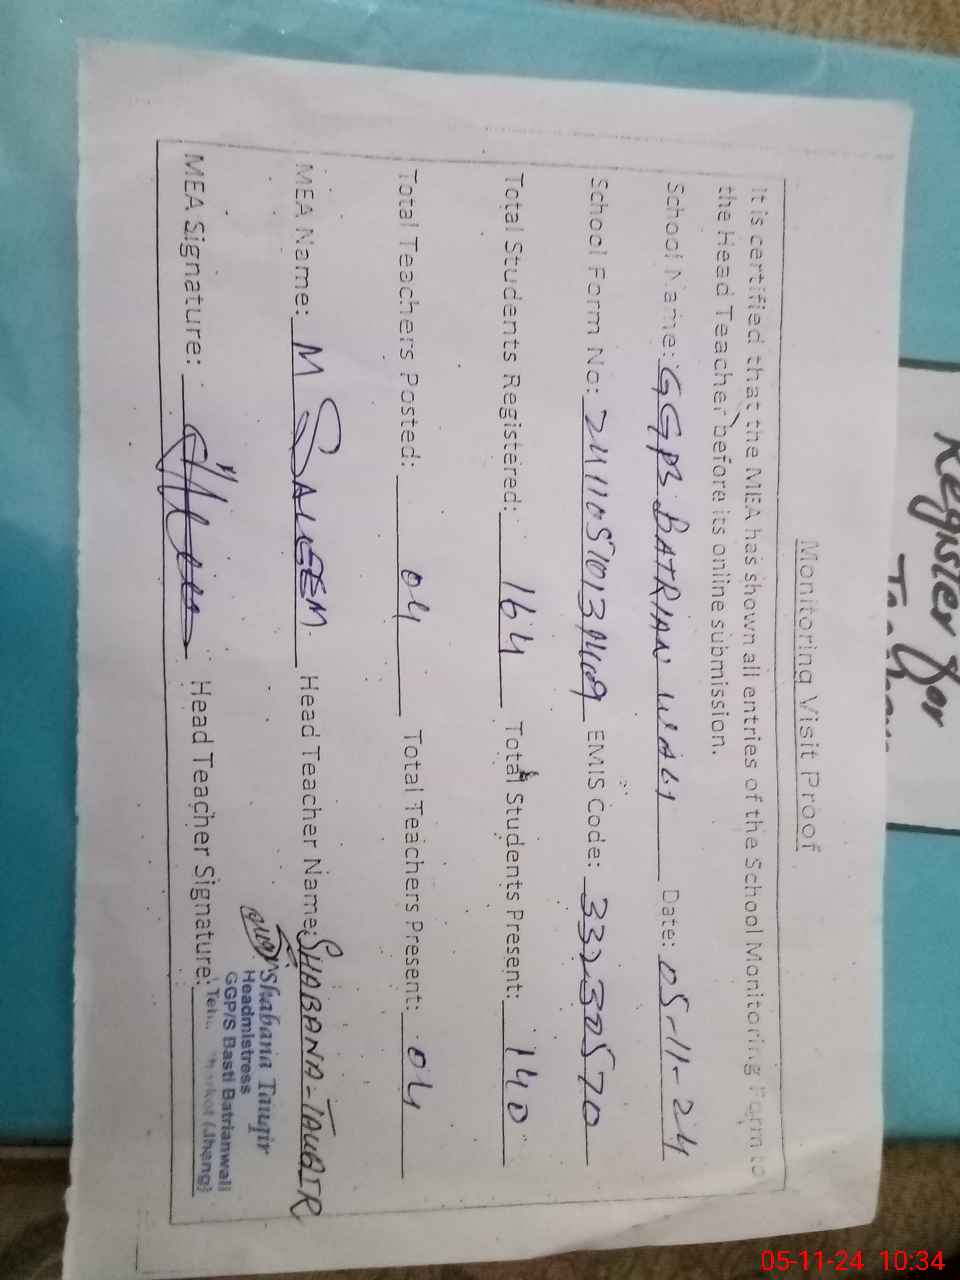 Monitoring Visit Proof
It is certified that the MEA has shown all entries of the School Monitoring Form to
the Head Teacher before its online submission.
School Name: GGPS BATRIAN WALI Date: 05-11-24
School Form No: EMIS Code: 33230570
Total Students Registered: 164 Total Students Present: 140
Total Teachers Posted: 04 Total Teachers Present: 04
MEA Name: M SALEEM Head Teacher Name: SHABANA-TAUQIR
MEA Signature: Head Teacher Signature:
Shabana Tauqir
Headmistress
GGP/S Basti Batrianwali
(Jhang)
Register for
05-11-24 10:34